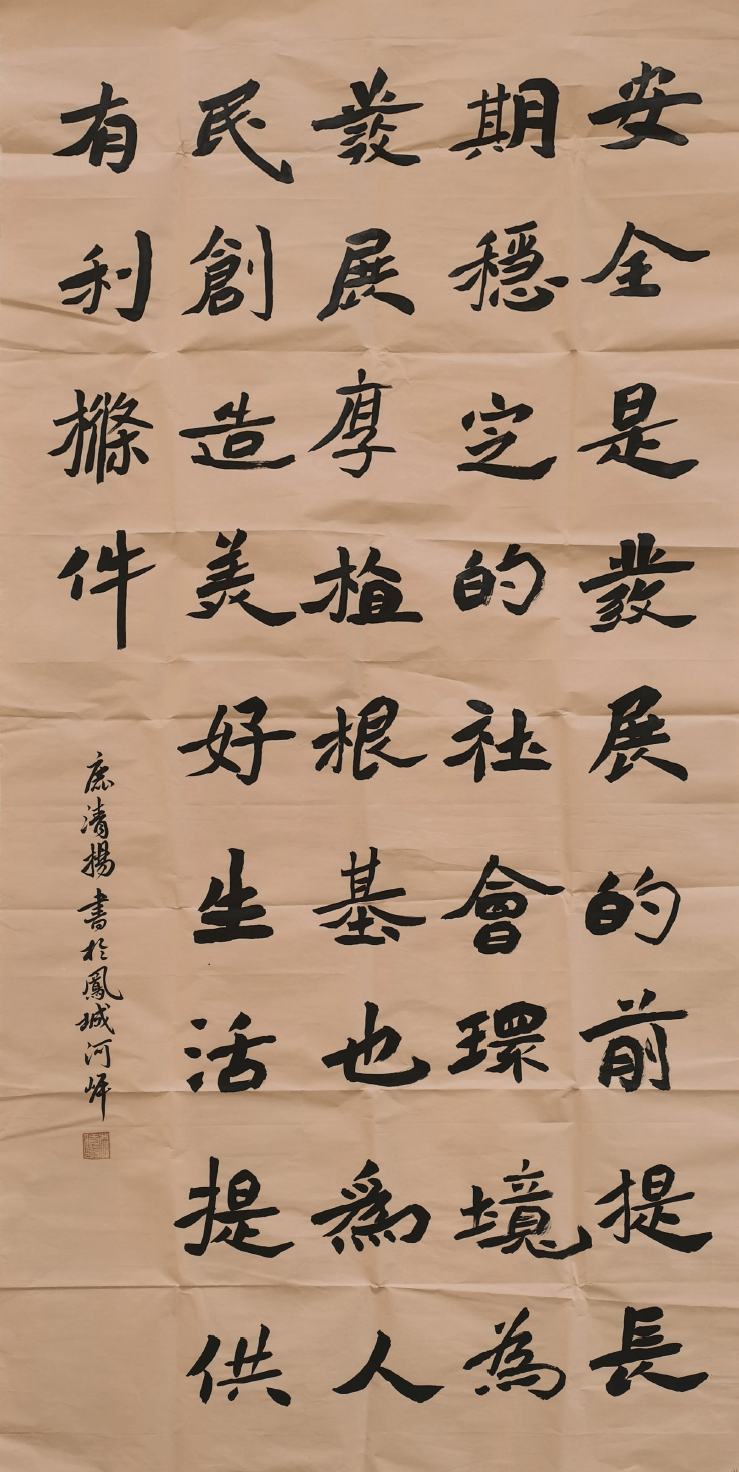 安全是發展的前提長
期穩定的社會環境為
發展厚植根基也為人
民創造美好生活提供
有利條件
清揚書於鳳城河畔